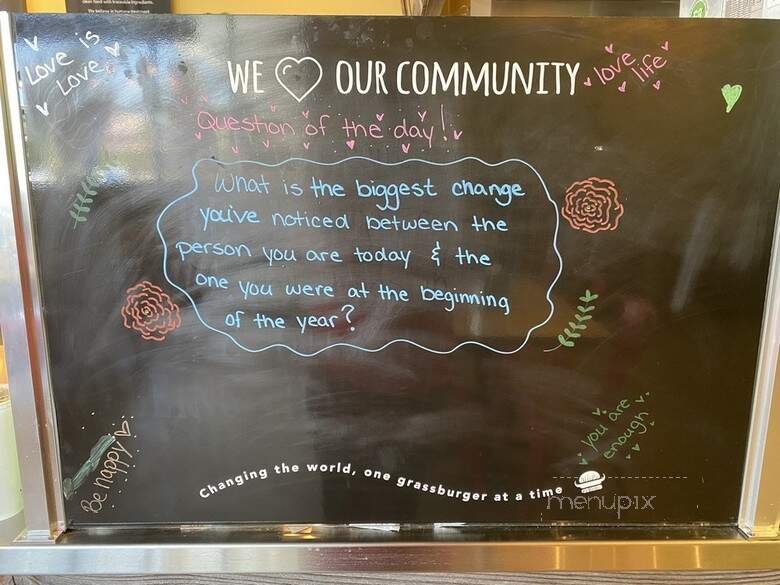 clean food with traceable ingredients.
We believe in humane treatment
Love is
Love
WE OUR COMMUNITY
love
life
Question of the day!
What is the biggest change
you've noticed between the
person you are today & the
one you were at the beginning
of the year?
you are
enough
Be happy
Changing the world, one grassburger at a time
menupix